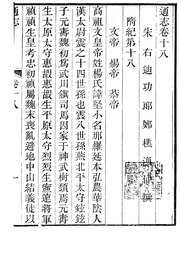 通志卷十八
宋右迪功郎鄭樵漁仲撰
隋紀第十八
文帝 煬帝 恭帝
高祖文皇帝姓楊氏諱堅小名那羅延本弘農華陰人
漢太尉震之十四世孫也震八世孫燕北平太守鉉鉉
子元壽魏初為武川鎮司馬因家于神武樹頹焉元壽
生太原太守惠嘏惠嘏生平原太守烈烈生寧遠將軍
禎禎生皇考忠初禎屬魏末喪亂避地中山結義徒以
通志 卷十八